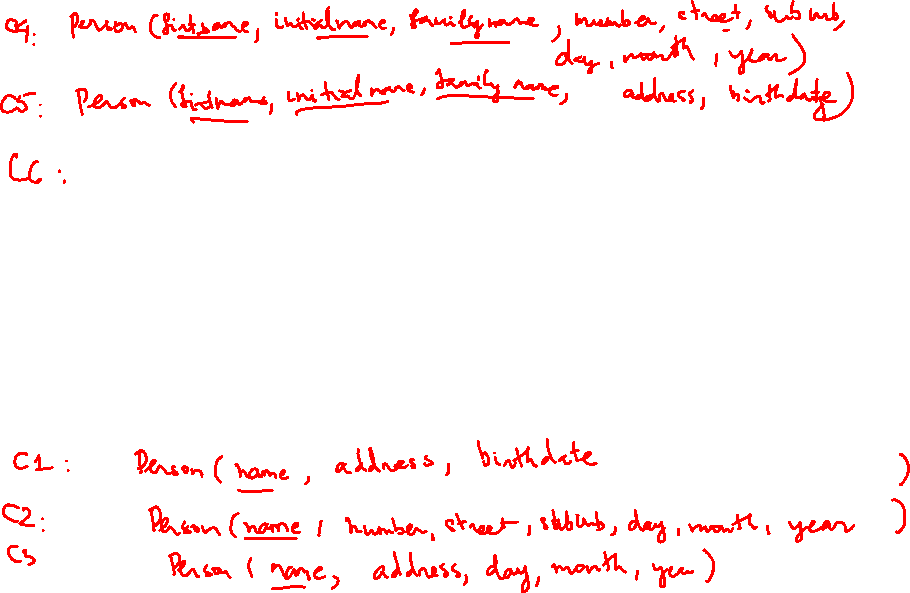 C4: Person (firstname, initialname, familyname, number, street, suburb,
day, month, year)
C5: Person (firstname, initial name, family name, address, birthdate)
C6:
C1: Person (name, address, birthdate )
C2: Person (name, number, street, suburb, day, month, year )
C3 Person ( name, address, day, month, year)